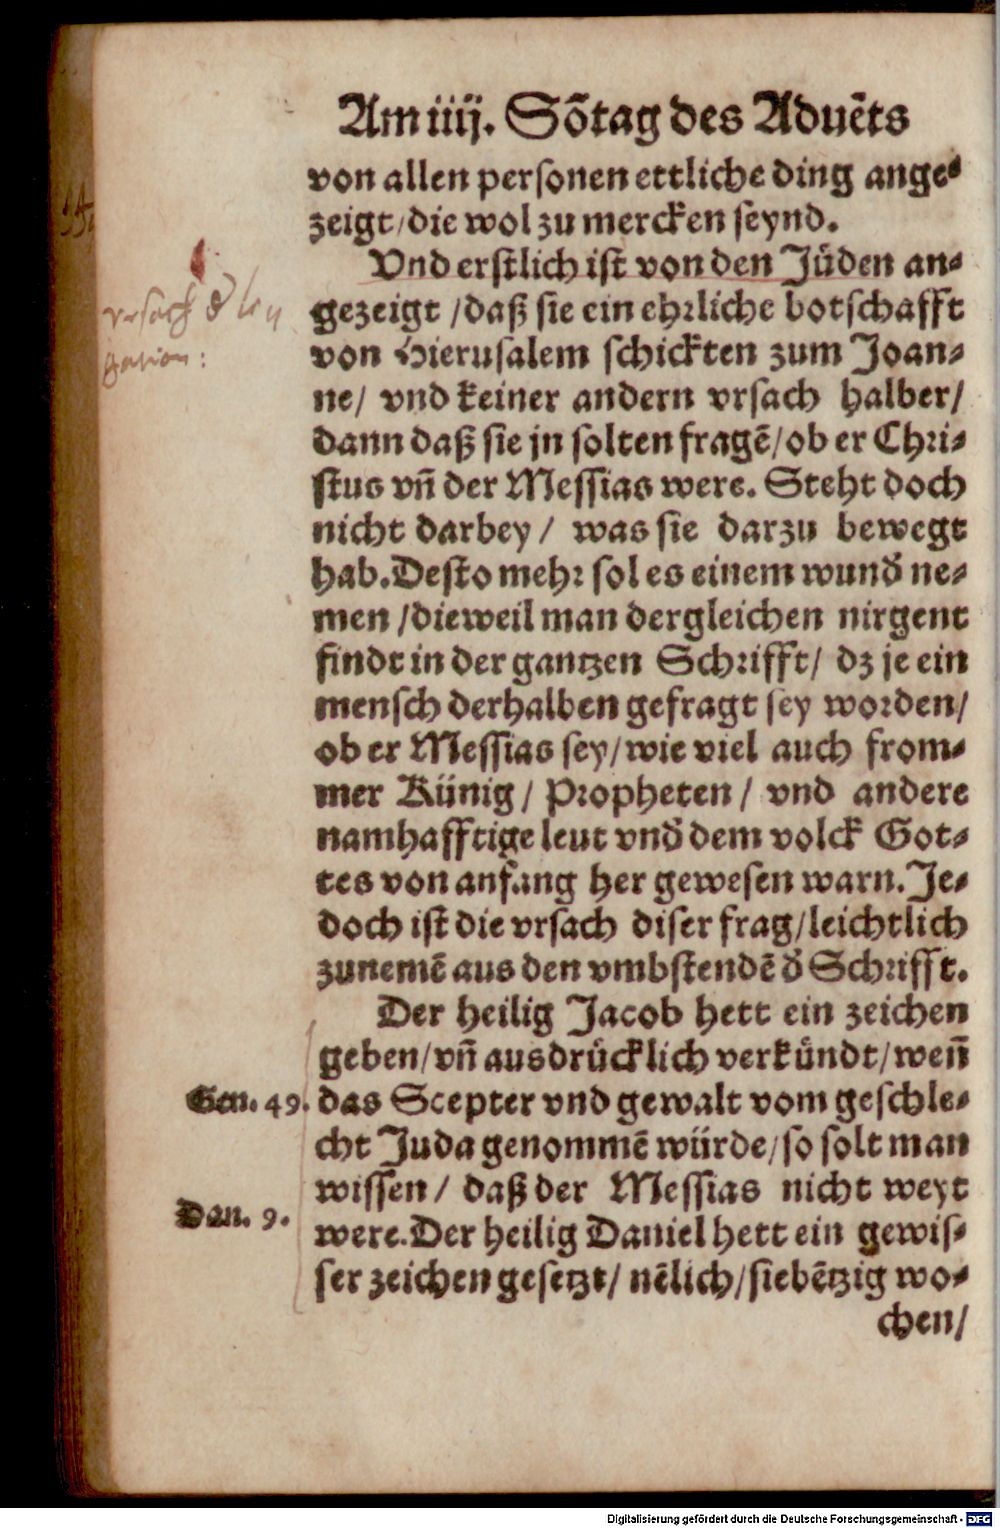 Am iiij. Sõtag des Aduẽts
von allen personen ettliche ding ange-
zeigt/die wol zu mercken seynd.
Vnd erstlich ist von den Jüden an-
gezeigt /daß sie ein ehrliche botschafft
vrsach der
von Hierusalem schickten zum Joan-
gation:
ne/ vnd keiner andern vrsach halber/
dann daß sie jn solten fragẽ/ob er Chri-
stus vñ der Messias were. Steht doch
nicht darbey/ was sie darzu bewegt
hab. Desto mehr sol es einem wund' ne-
men /dieweil man dergleichen nirgent
findt in der gantzen Schrifft/ dz je ein
mensch derhalben gefragt sey worden/
ob er Messias sey/wie viel auch from-
mer Künig/ Propheten/ vnd andere
namhafftige leut vnd' dem volck Got-
tes von anfang her gewesen warn. Je-
doch ist die vrsach diser frag/leichtlich
zunemẽ aus den vmbstendẽ d' Schrifft.
Der heilig Jacob hett ein zeichen
geben/vñ ausdrücklich verkündt/weñ
Gen. 49.
das Scepter vnd gewalt vom geschle-
cht Juda genommẽ würde/so solt man
wissen/ daß der Messias nicht weyt
Dan. 9.
were. Der heilig Daniel hett ein gewis-
ser zeichen gesetzt/ nẽlich/siebẽtzig wo-
chen/
Digitalisierung gefördert durch die Deutsche Forschungsgemeinschaft - DFG